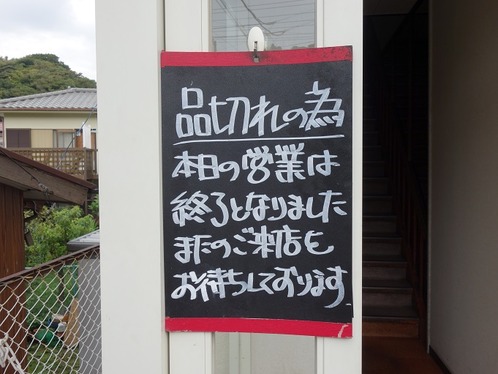 品切れの為
本日の営業は
終了となりました
またのご来店も
お待ちしております